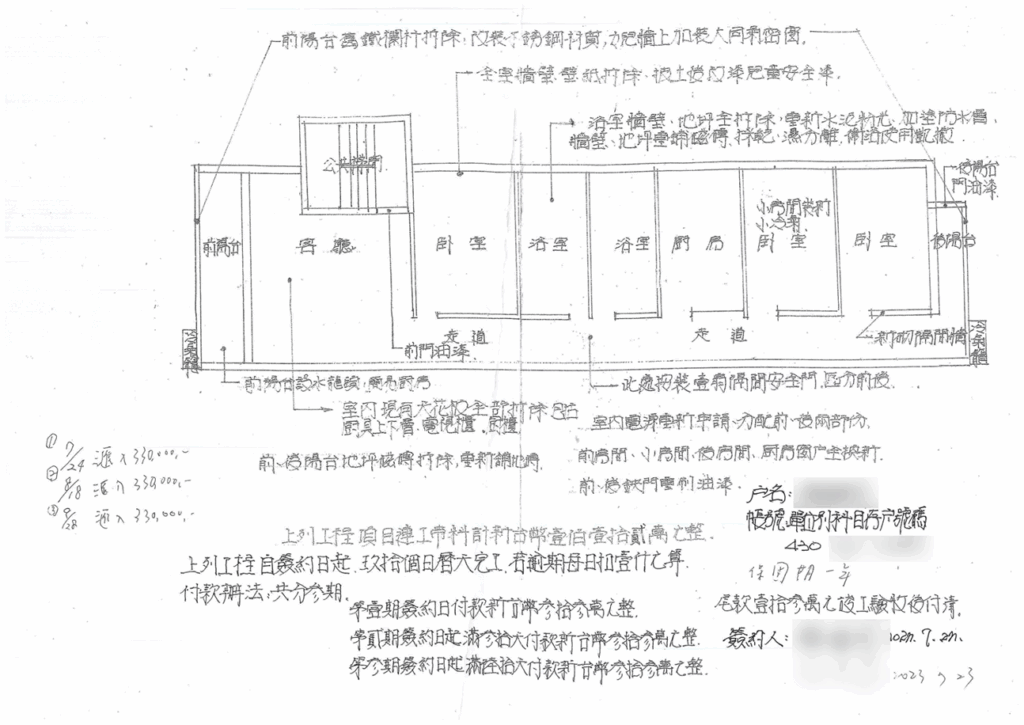 前陽台舊鐵欄杆拆除,改裝不銹鋼材質,
全室牆壁壁紙拆除,披土後改漆兒童安全漆.
浴室牆壁、地坪全拆除,重新水泥粉光,加塗防水層,
牆壁、地坪重鋪磁磚,
公共樓梯
後陽台
門油漆
小房間裝新
小冷氣
前陽台
客廳
卧室
浴室
浴室
厨房
卧室
卧室
後陽台
走道
走道
前門油漆
新砌隔間牆
前陽台設水龍頭,
此處按裝壹扇隔間安全門,區分前後.
室內現有天花板全部拆除包括
厨具上下層、電視櫃、
室內電源重新申請、分配前、後兩部份.
前、後陽台地坪磁磚拆除,重新鋪地磚
前房間、小房間、後房間、厨房窗户全換新.
前、後鉄門重刷油漆.
① 7/24 滙入330,000,-
② 8/18 滙入330,000,-
③ 9/28 滙入330,000,-
户名:
帳號:
430
保固期一年
上列工程項目連工帶料計新台幣壹佰壹拾貳萬元整.
上列工程自簽約日起,玖拾個日曆天完工,若逾期每日扣壹仟元算.
付款辦法:共分參期.
第壹期簽約日付款新台幣參拾參萬元整.
第貳期簽約日起滿參拾天付款新台幣參拾參萬元整.
第參期簽約日起滿陸拾天付款新台幣參拾參萬元整.
尾款壹拾參萬元竣工驗收後付清.
簽約人:
2023 7 23